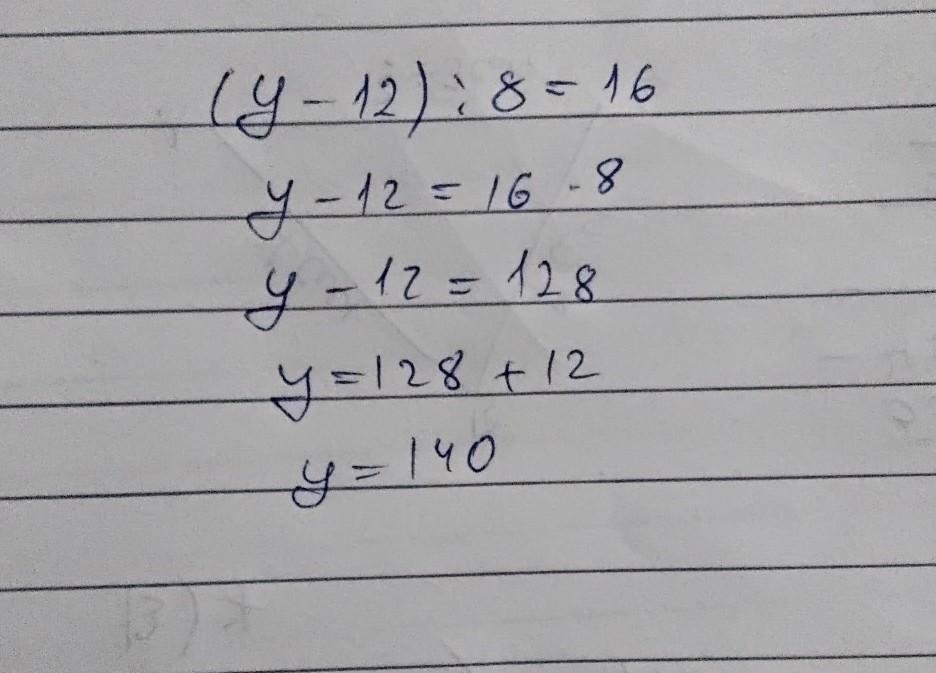 (y - 12) : 8 = 16
y - 12 = 16 · 8
y - 12 = 128
y = 128 + 12
y = 140